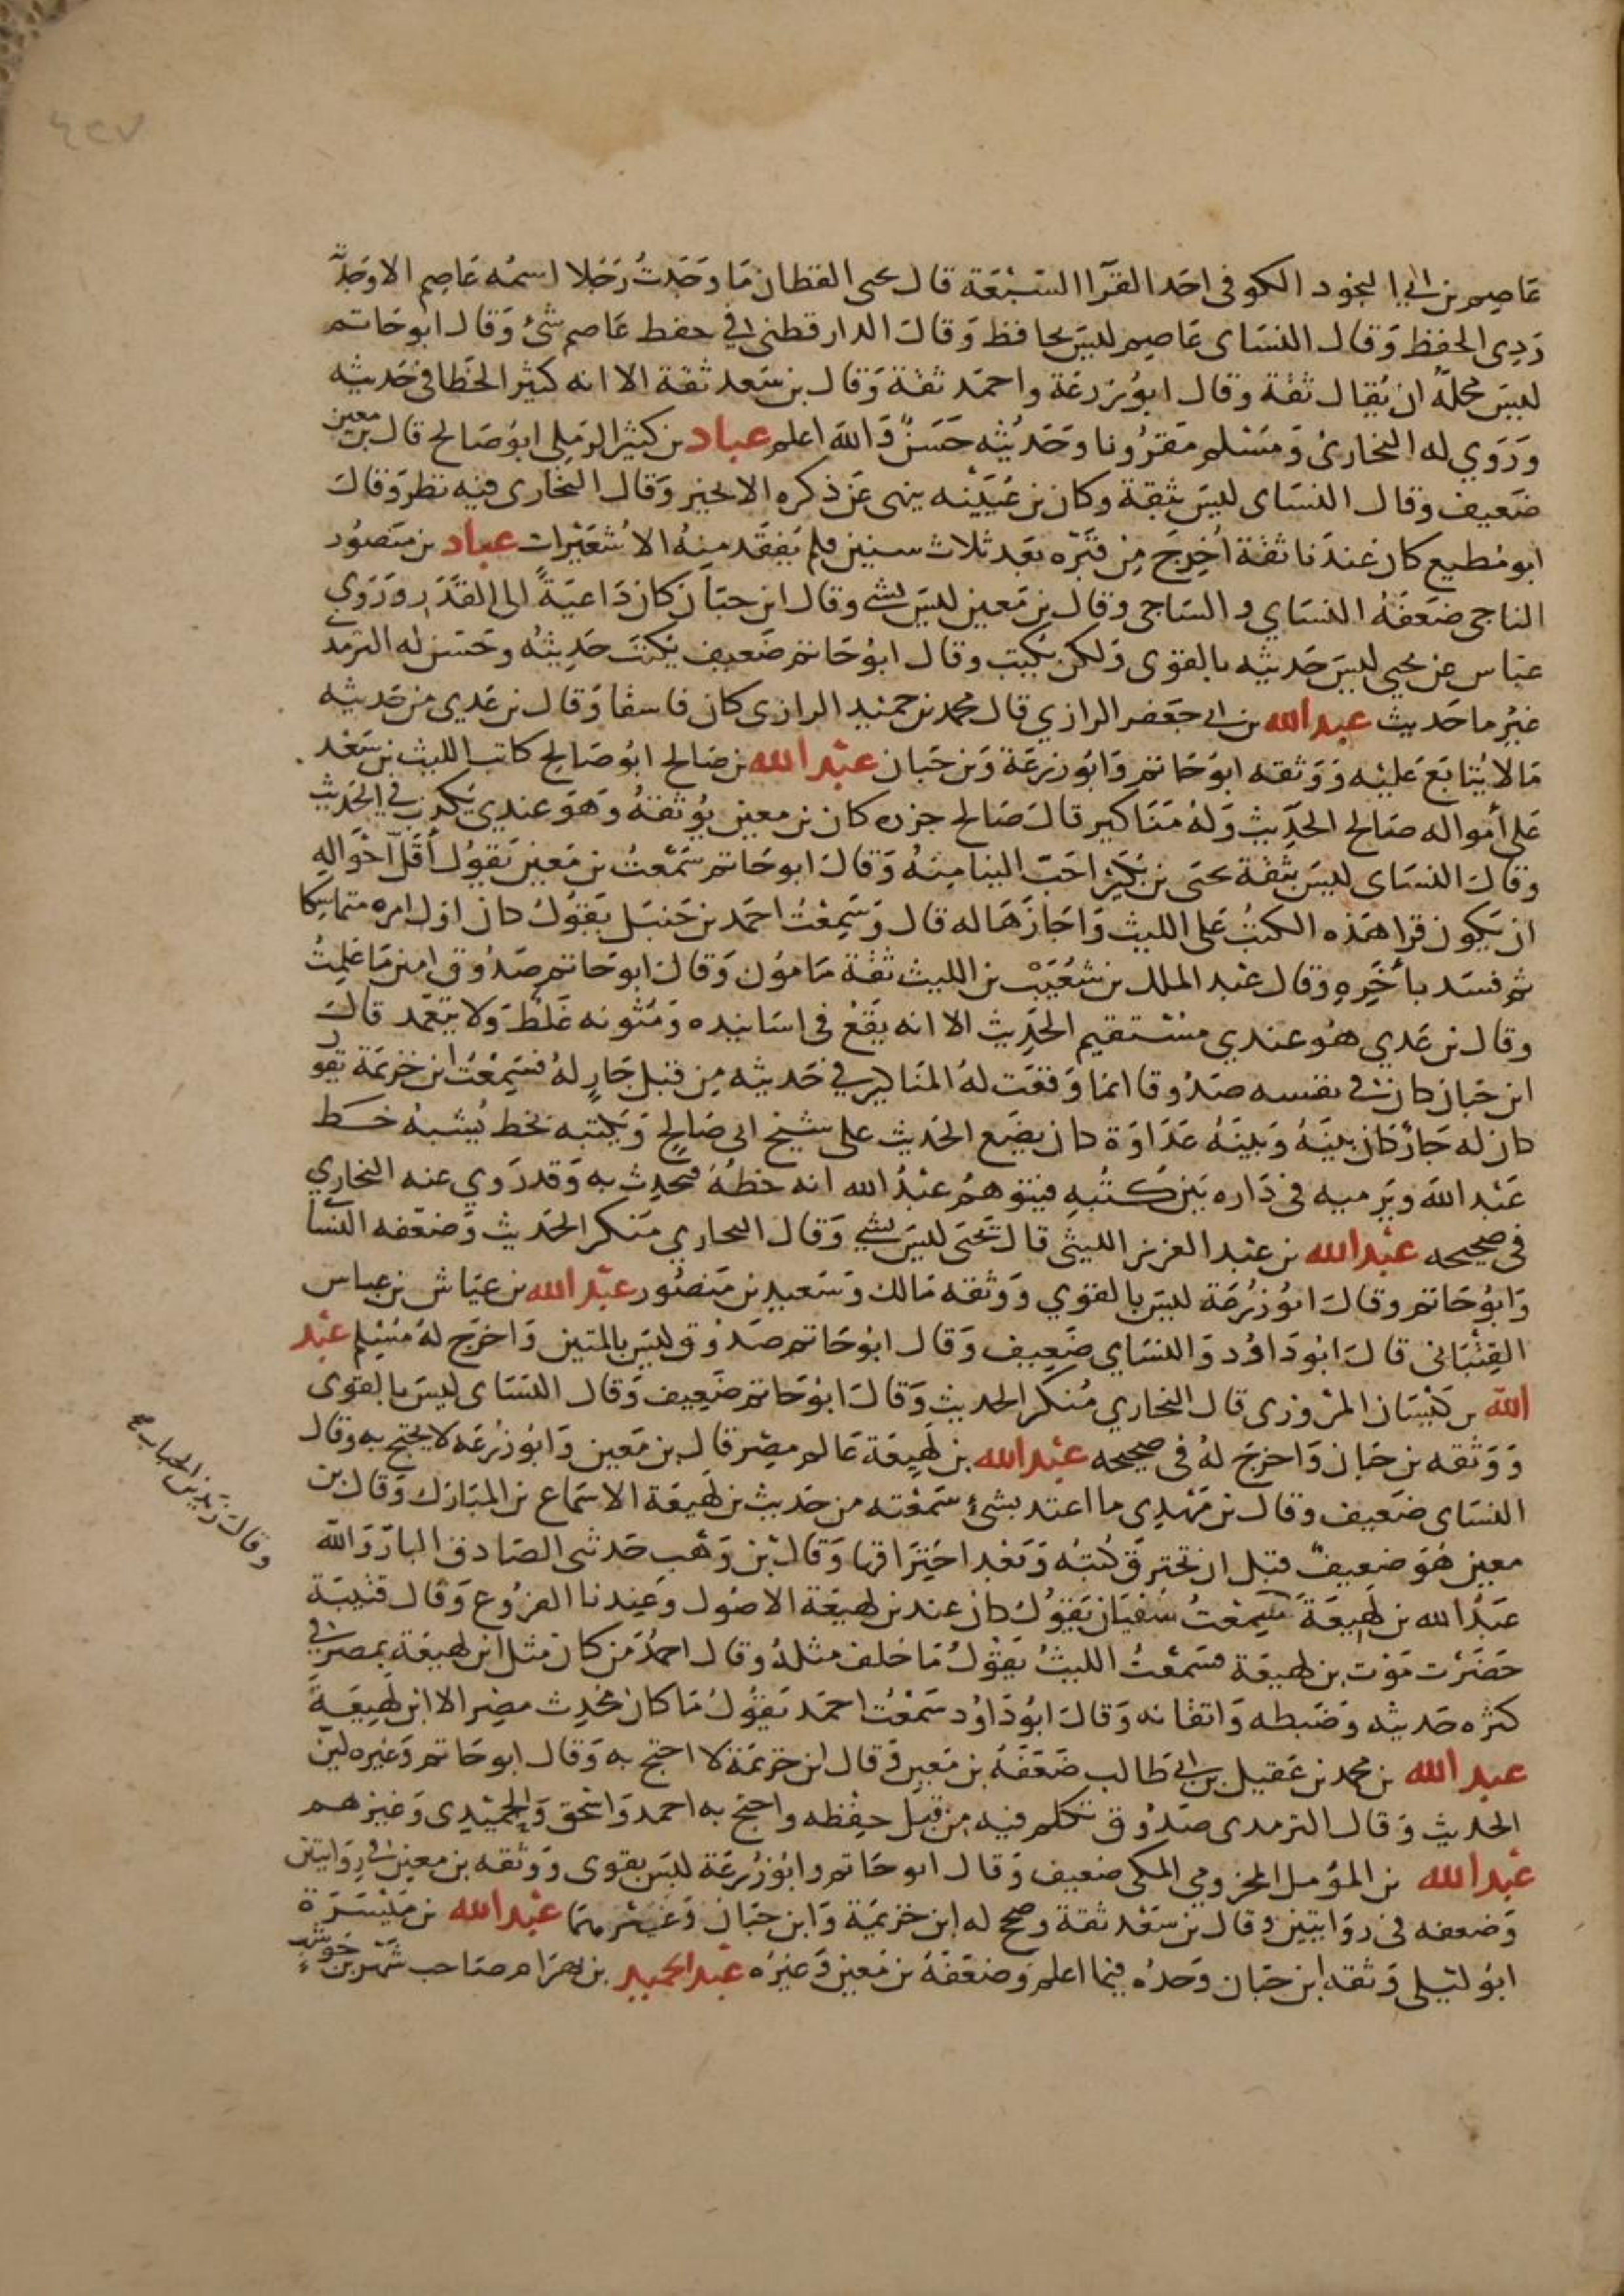 ٤٢٧
عاصم بن ابي النجود الكوفى احد القرآ السبعة قال يحيى القطان ما وجدت رجلا اسمه عاصم الا وجدته
ردى الحفظ وقال النساى عاصم ليس بحافظ وقال الدارقطنى في حفظ عاصم شئ وقال ابو حاتم
ليس محله ان يقال ثقة وقال ابو زرعة واحمد ثقة وقال بن سعد ثقة الا انه كثير الخطا في حديثه
وروي له البخارى ومسلم مقرونا وحديثه حسن والله اعلم عباد بن كثير الرملى ابو صالح قال بن معين
ضعيف وقال النساى ليس بثقة وكان بن عيينه ينهى عن ذكره الا بخير وقال البخارى فيه نظر وقال
ابو مطيع كان عندنا ثقة اخرج من قبره بعد ثلاث سنين فلم يفقد منه الا شعيرات عباد بن منصور
الناجى ضعفه النساي والساجى وقال بن معين ليس بشي وقال ابن حبان كان داعية الى القدر وروى
عباس عن يحيى ليس حديثه بالقوى ولكن يكتب وقال ابو حاتم ضعيف يكتب حديثه وحسن له الترمذى
غير ما حديث عبد الله بن ابي جعفر الرازي قال محمد بن حميد الرازى كان فاسقا وقال بن عدي من حديثه
مالا يتابع عليه ووثقه ابو حاتم وابو زرعة وبن حبان عبد الله بن صالح ابو صالح كاتب الليث بن سعد
على أمواله صالح الحديث وله مناكير قال صالح جزره كان بن معين يوثقه وهو عندي يكذب في الحديث
وقال النساى ليس بثقة يحيى بن بكير احب الينا منه وقال ابو حاتم سمعت بن معين يقول أقل أحواله
ان يكون قرا هذه الكتب على الليث واجازها له قال وسمعت احمد بن حنبل يقول كان اول امره متماسكا
ثم فسد بأخره وقال عبد الملك بن شعيب بن الليث ثقة مامون وقال ابو حاتم صدوق امين ما علمت
وقال بن عدي هو عندي مستقيم الحديث الا انه يقع فى اسانيده ومتونه غلط ولا يتعمد قال
ابن حبان كان في نفسه صدوقا انما وقعت له المناكير في حديثه من قبل جار له فسمعت ابن خزيمة يقول
كان له جار كان بينه وبينه عداوة كان يضع الحديث على شيخ ابى صالح ويكتبه بخط يشبه خط
عبد الله ويرميه فى داره بين كتبه فيتوهم عبد الله انه خطه فيحدث به وقد روي عنه البخاري
فى صحيحه عبد الله بن عبد العزيز الليثى قال يحيى ليس بشي وقال البخاري منكر الحديث وضعفه النسا
وابو حاتم وقال ابو زرعة ليس بالقوي ووثقه مالك وسعيد بن منصور عبد الله بن عياش بن عباس
القتبانى قال ابو داود والنساي ضعيف وقال ابو حاتم صدوق ليس بالمتين واخرج له مسلم عبد
الله بن كيسان المروزى قال البخاري منكر الحديث وقال ابو حاتم ضعيف وقال النساى ليس بالقوى
ووثقه بن حبان واخرج له فى صحيحه عبد الله بن لهيعة عالم مصر قال بن معين وابو زرعه لا يحتج به وقال
النساى ضعيف وقال بن مهدى ما اعتد بشئ سمعته من حديث بن لهيعة الا سماع بن المبارك وقال بن
معين هو ضعيف قبل ان تحترق كتبه وبعد احتراقها وقال بن وهب حدثنى الصادق البار والله
عبد الله بن لهيعة سمعت سفيان يقول كان عند بن لهيعة الاصول وعندنا الفروع وقال قتيبة
حضرت موت بن لهيعة فسمعت الليث يقول ما خلف مثله وقال احمد من كان مثل ابن لهيعة بمصر في
كثره حديثه وضبطه واتقانه وقال ابو داود سمعت احمد يقول ما كان محدث مصر الا ابن لهيعة
عبد الله بن محمد بن عقيل بن ابي طالب ضعفه بن معين وقال ابن خزيمة لا احتج به وقال ابو حاتم وغيره لين
الحديث وقال الترمدى صدوق تكلم فيه من قبل حفظه واحتج به احمد واسحق والحميدى وغيرهم
عبد الله بن المؤمل المخزومي المكى ضعيف وقال ابو حاتم وابو زرعة ليس بقوى ووثقه بن معين في روايتين
وضعفه فى روايتين وقال بن سعد ثقة وصحح له ابن خزيمة وابن حبان وغيرهما عبد الله بن ميسرة
ابو ليلى وثقه ابن حبان وحده فيما اعلم وضعفه بن معين وغيره عبد الحميد بن بهرام صاحب شهر بن حوشب
وقال زيد بن الحباب